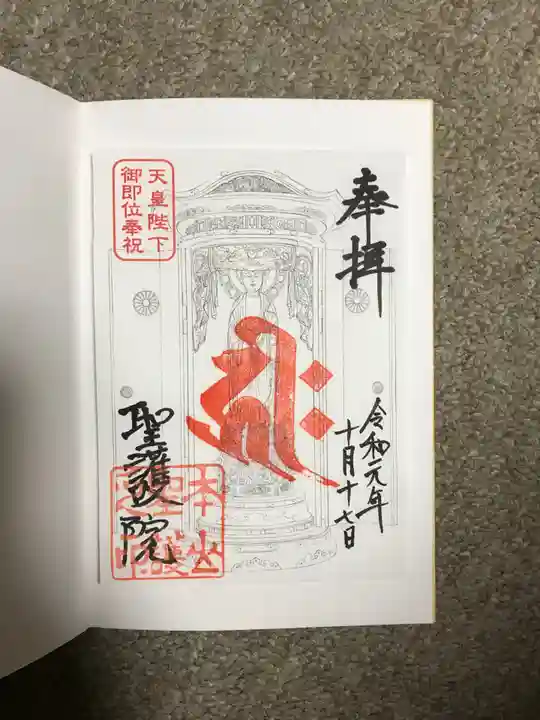 奉拝
令和元年
十月十七日
天皇陛下
御即位奉祝
聖護院
本山